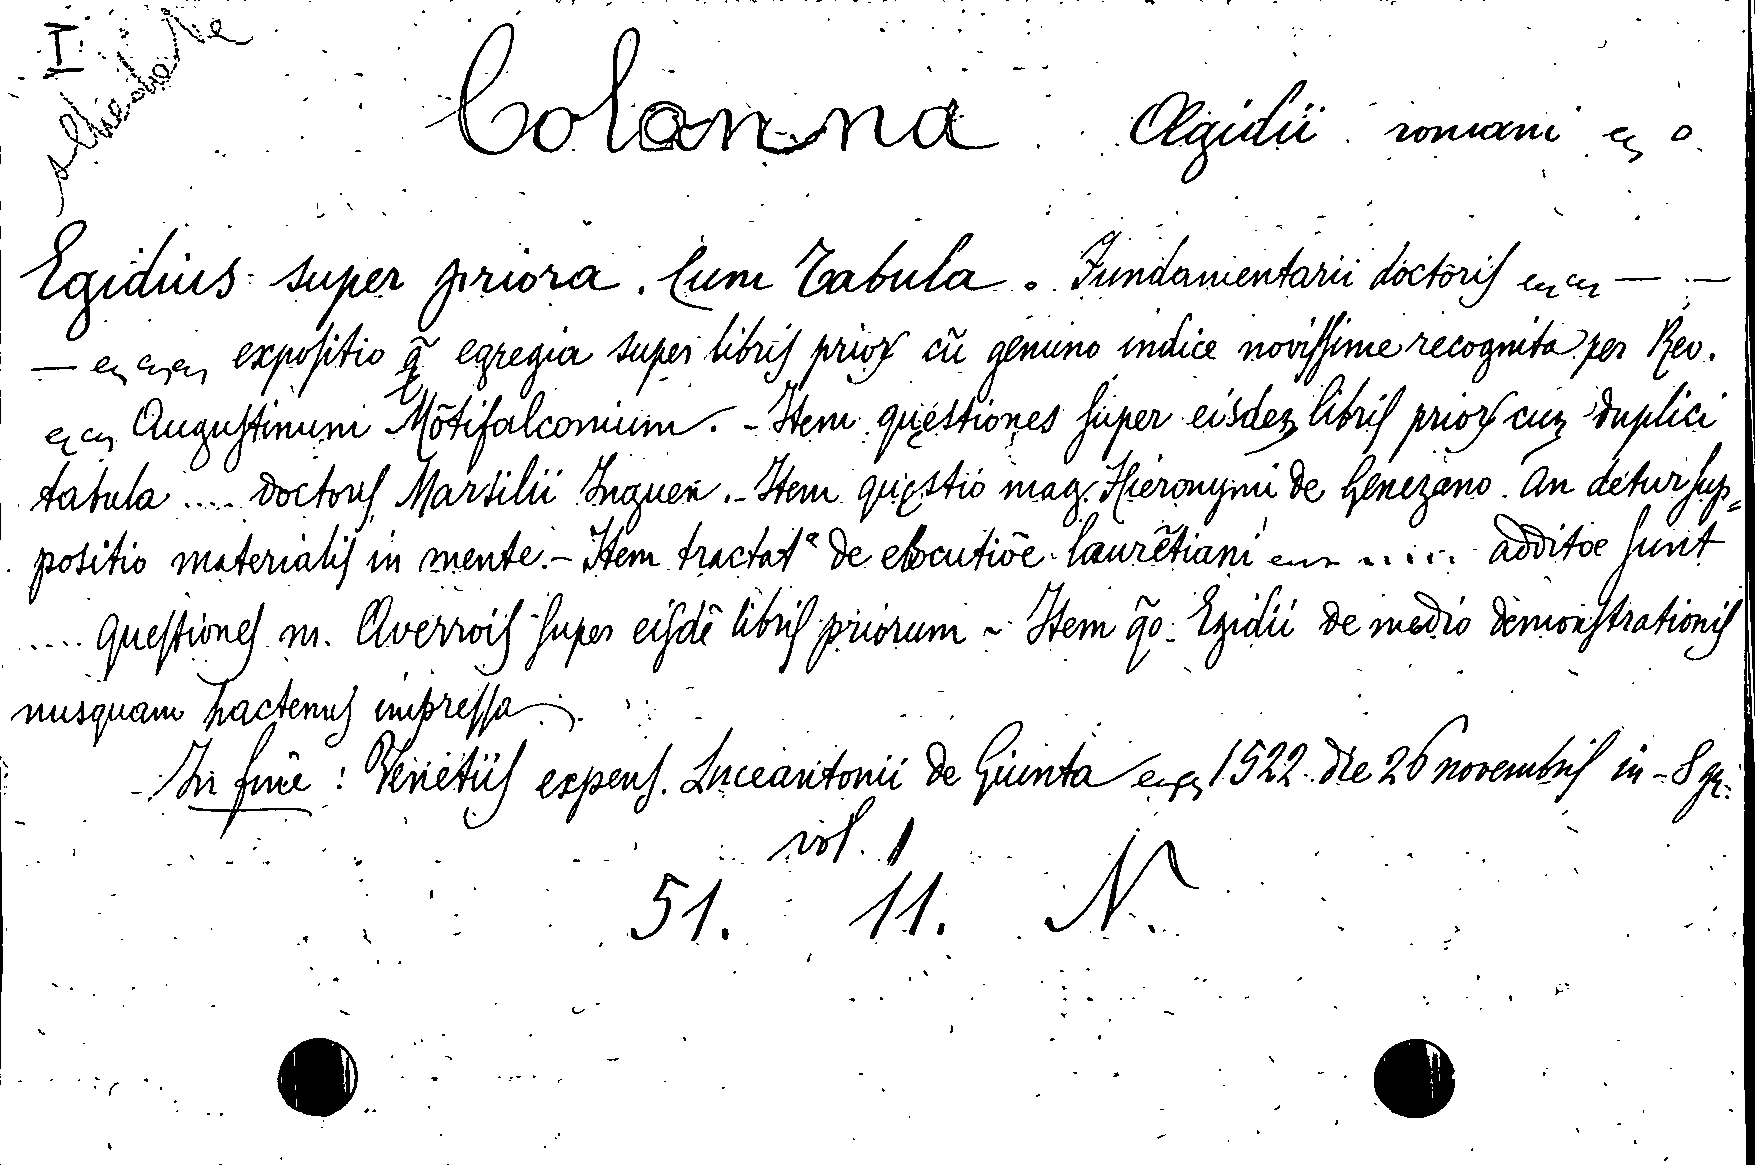 I
schedate
Colonna Ægidii romani
Egidius super priora. Cum Tabula. Fundamentarii doctoris — —
— expositio q̃ egregia super libris prioꝝ cũ genuino indice novissime recognita per Rev.
Augustinum Mõtifalconium. - Item quęstiones super eisdeꝫ libris prioꝝ cuꝫ duplici
tabula .... doctoris Marsilii Inguen̄. - Item quęstio mag. Hieronymi de Genezano. An detur sup=
positio materialis in mente. - Item tractatꝰ de elocutiõe Laurẽtiani ..... additæ sunt
.... questiones m. Averrois super eisdẽ libris priorum - Item q̃o. Egidii de medio demonstrationis
nusquam hactenus impressa.
In fine: Venetiis expens. Luceantonii de Giunta 1522 die 26 novembris in-8 gr.
vol. 1
51. 11. N.